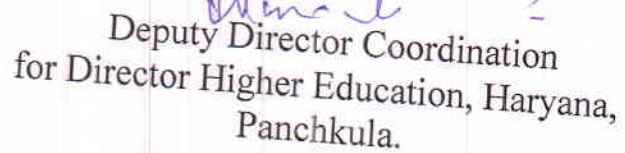 Deputy Director Coordination
for Director Higher Education, Haryana,
Panchkula.